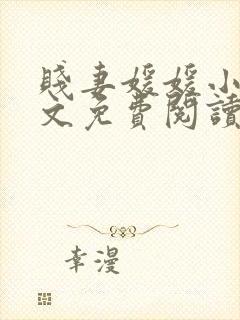 賤妻媛媛小
文免費閱讀
幸漫